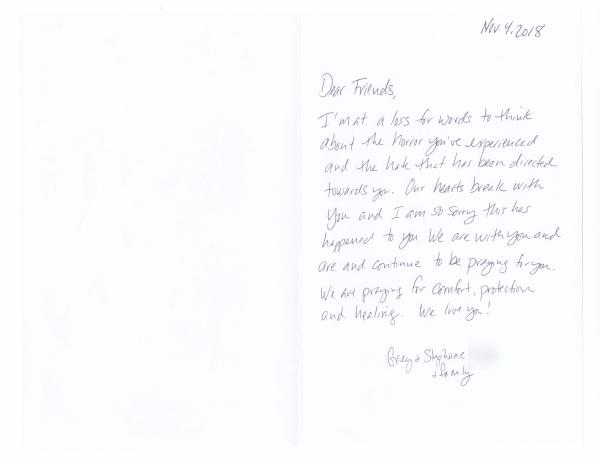 Nov 4, 2018
Dear Friends,
I'm at a loss for words to think
about the horror you've experienced
and the hate that has been directed
towards you. Our hearts break with
you and I am so sorry this has
happened to you We are with you and
are and continue to be praying for you.
We are praying for comfort, protection
and healing. We love you!
Greg + Stephanie
+ family